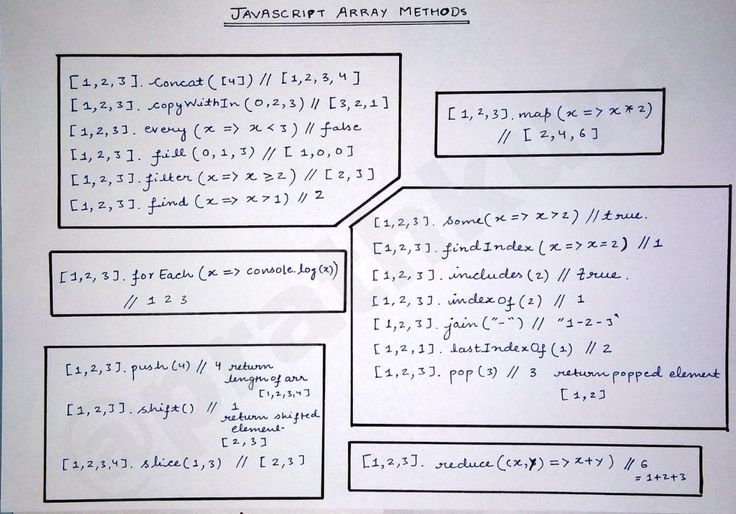 JAVASCRIPT ARRAY METHODS
[1,2,3]. concat([4]) // [1,2,3,4]
[1,2,3]. copyWithIn(0,2,3) // [3,2,1]
[1,2,3]. every(x => x<3) // false
[1,2,3]. fill(0,1,3) // [1,0,0]
[1,2,3]. filter(x => x ≥ 2) // [2,3]
[1,2,3]. find(x => x>1) // 2
[1,2,3]. map(x => x*2)
// [2,4,6]
[1,2,3]. forEach(x => console.log(x))
// 1 2 3
[1,2,3]. some(x => x>2) // true.
[1,2,3]. findIndex(x => x=2) // 1
[1,2,3]. includes(2) // true.
[1,2,3]. indexOf(2) // 1
[1,2,3]. join("-") // "1-2-3"
[1,2,1]. lastIndexOf(1) // 2
[1,2,3]. pop(3) // 3 return popped element
[1,2]
[1,2,3]. push(4) // 4 return
length of arr
[1,2,3,4]
[1,2,3]. shift() // 1
return shifted
element-
[2,3]
[1,2,3,4]. slice(1,3) // [2,3]
[1,2,3]. reduce((x,y) => x+y) // 6
= 1+2+3